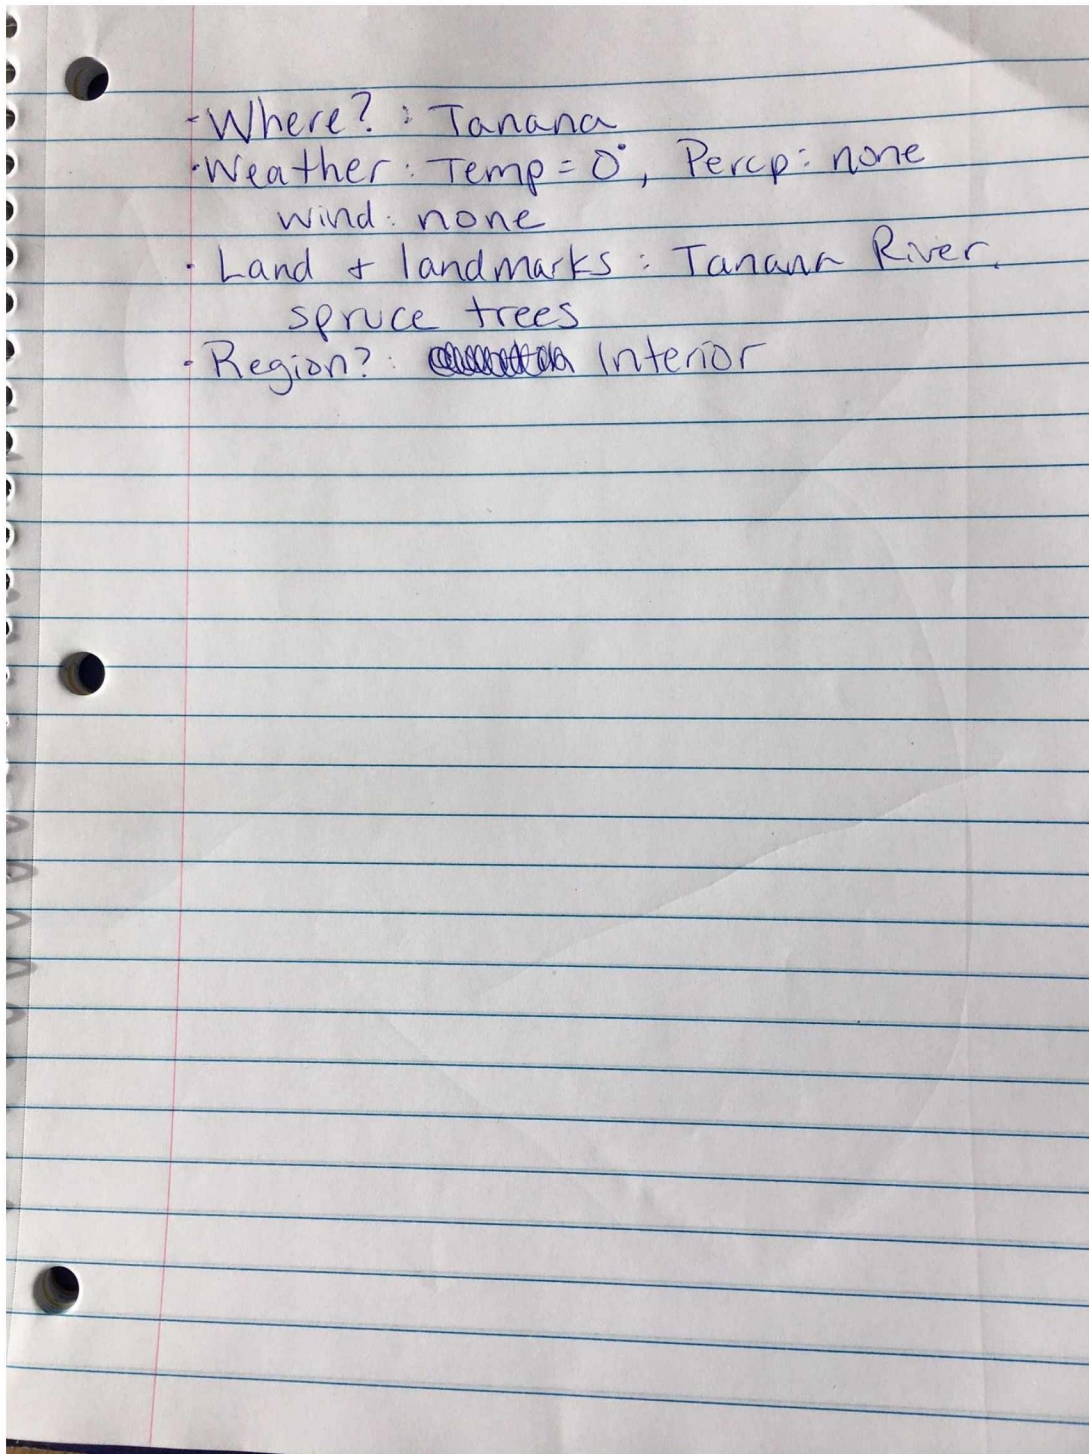 - Where? : Tanana
· Weather : Temp = 0°, Percp : none
wind : none
· Land + landmarks : Tanana River,
spruce trees
· Region? : Interior